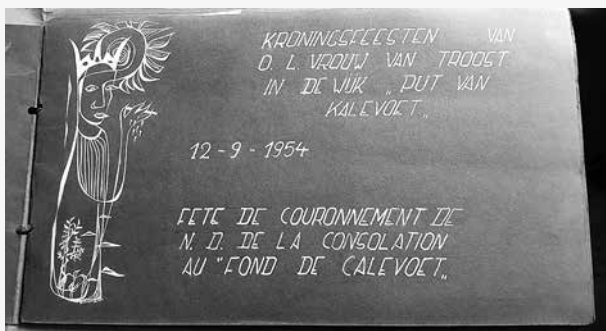 KRONINGSFEESTEN VAN
O. L. VROUW VAN TROOST
IN DE WIJK „ PUT VAN
KALEVOET „
12 - 9 - 1954
FETE DE COURONNEMENT DE
N. D. DE LA CONSOLATION
AU " FOND DE CALEVOET „